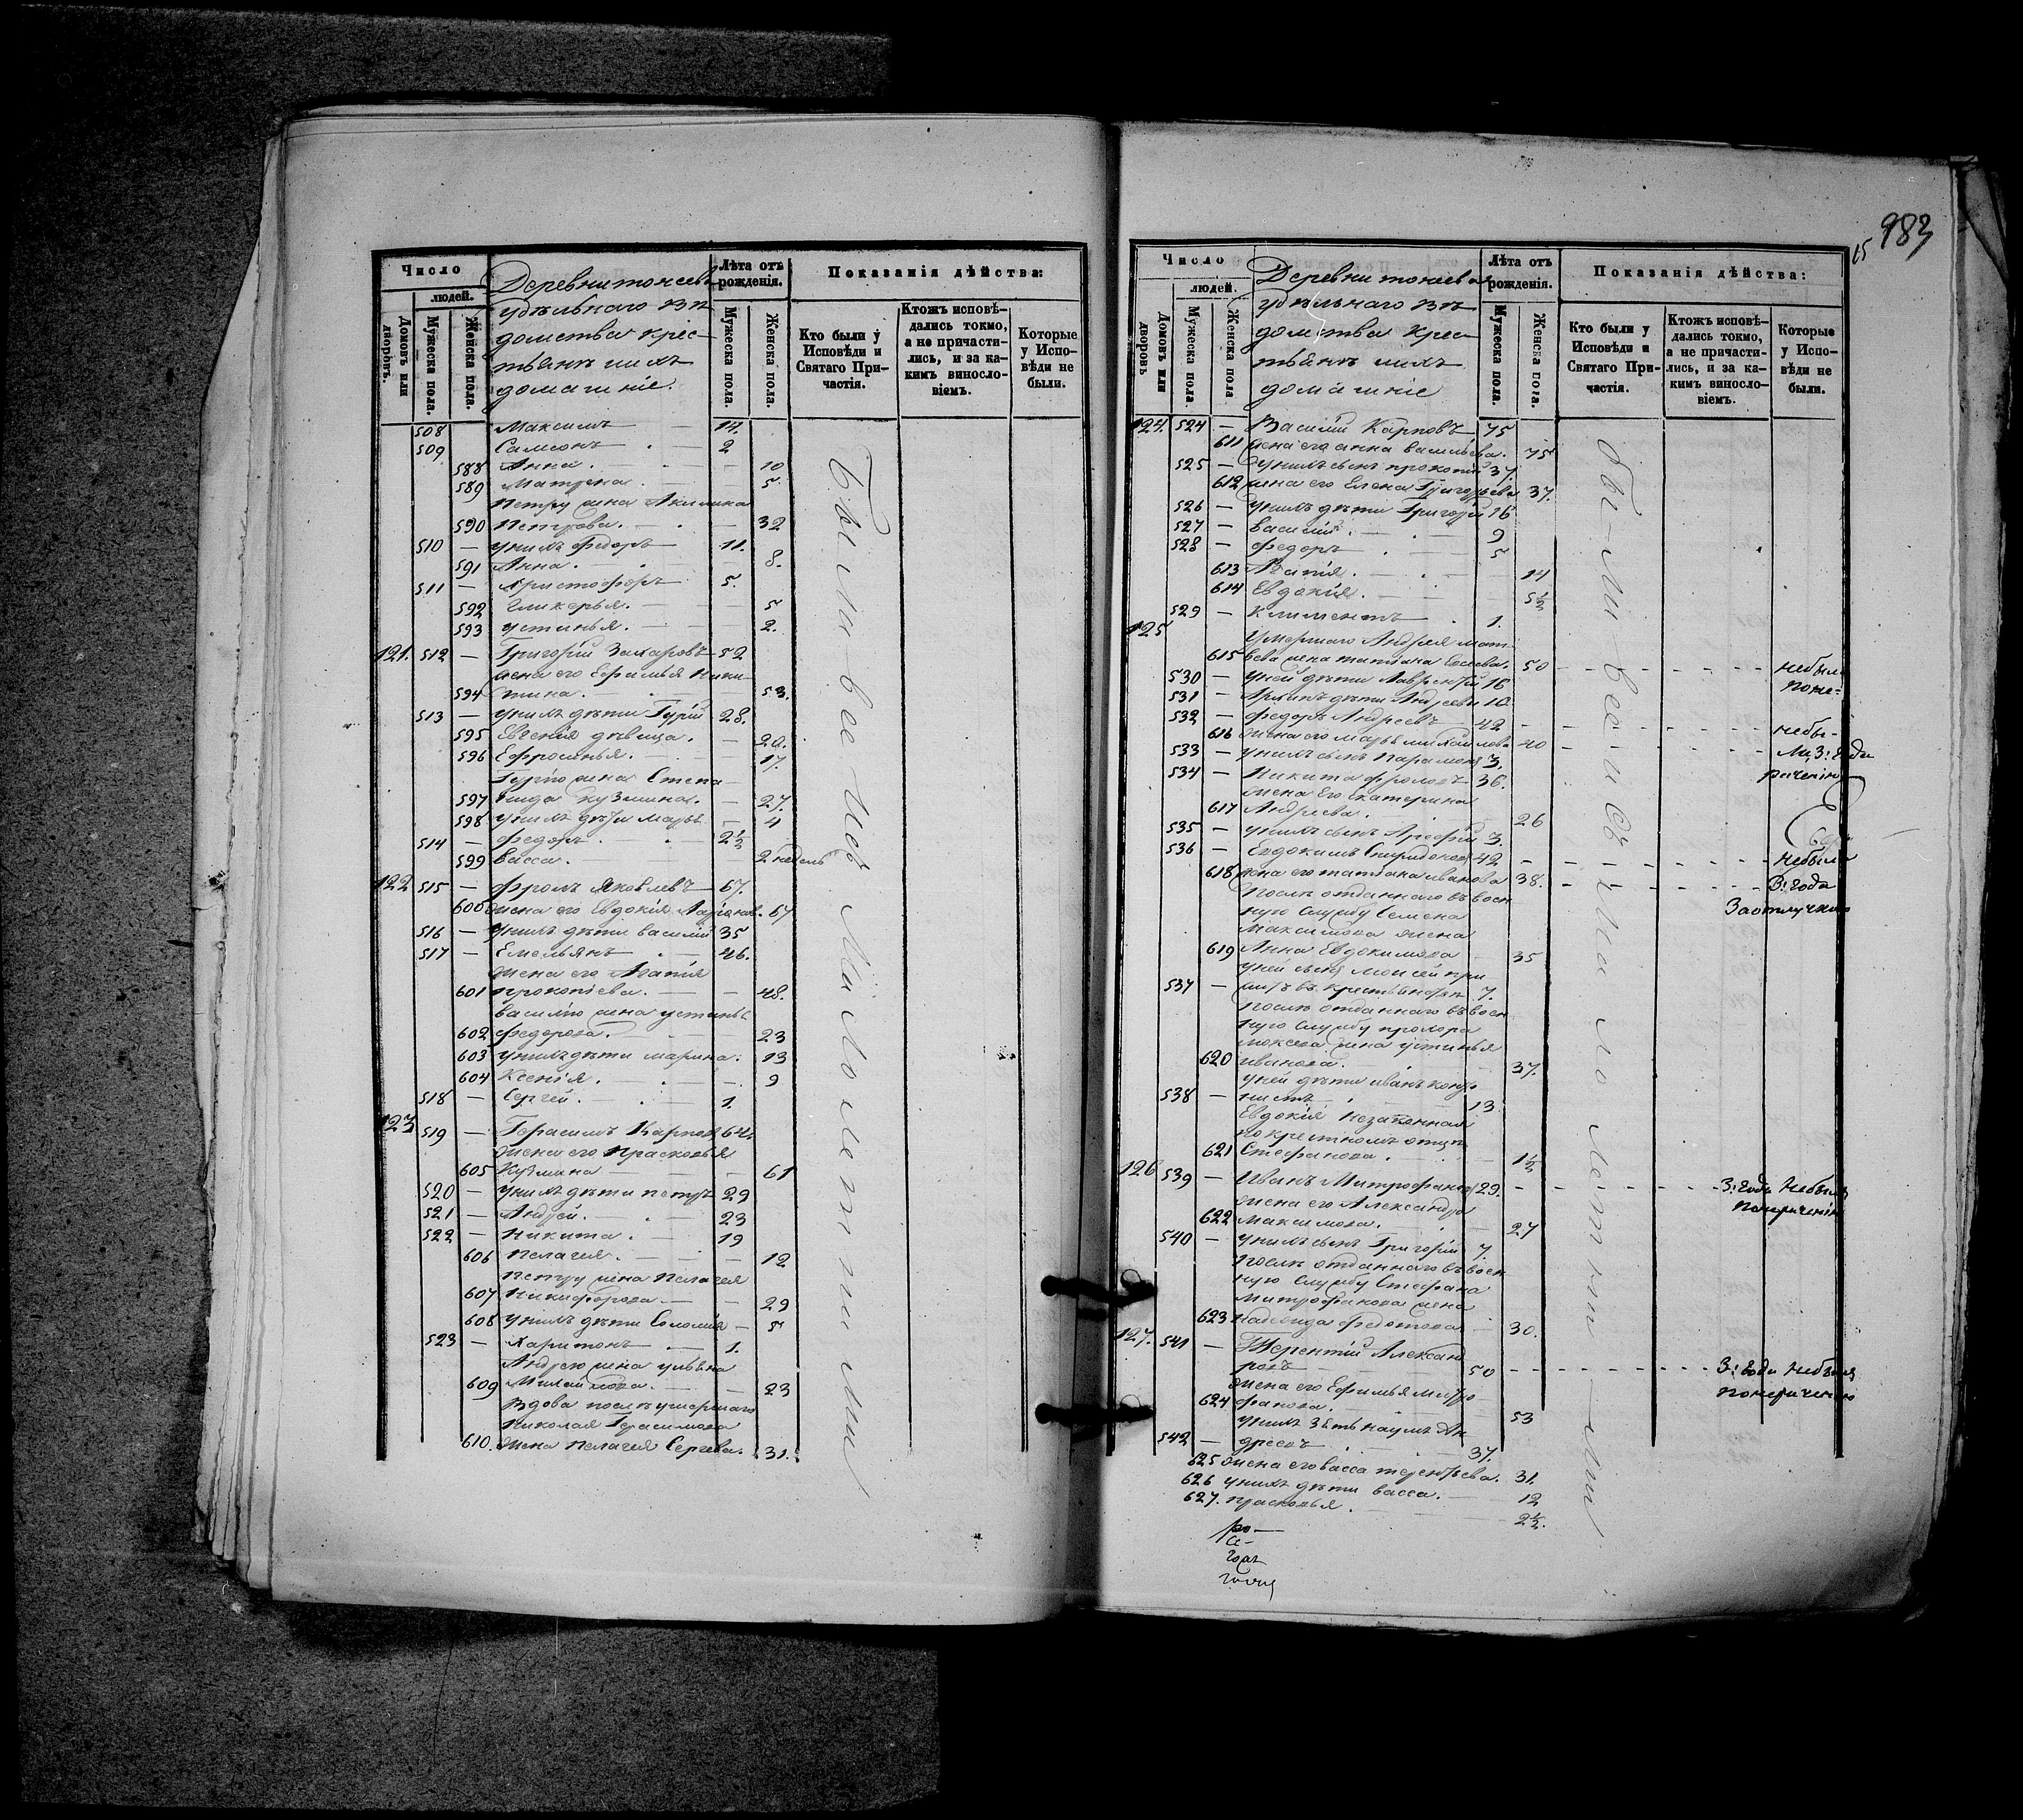 Число
людей.
Домовъ или дворовъ.
Мужеска пола.
Женска пола.
Деревни точаева
удѣльнаго вѣ
домства крес-
тьянъ и ихъ
домашніе.
Лѣта отъ рожденія.
Мужеска пола.
Женска пола.
Показанія дѣйства:
Кто были у Исповѣди и Святаго Причастія.
Ктожъ исповѣдались токмо, а не причастились, и за какимъ винословіемъ.
Которые у Исповѣди не были.
508 Максимъ — 14.
509 Самсонъ 2
588 Анна. — 10
589 Матрена — 5.
Петру жена Акилина
590 Петрова. — 32
510 — у нихъ Федоръ 11.
591 Анна. — 8.
511 — Христофоръ 5.
592 Гликерья. — 5
593 устинья. — 2.
121. 512 — Григорій Захаровъ 52
жена его Ефимья Ники-
594 тина. — 53.
513 — у нихъ дѣти Гурій 28.
595 Евгенія дѣвица. — 20.
596 Ефросинья. — 17.
Гурію жена Степа-
597 нида Кузмина. — 27.
598 у нихъ дѣти Марья — 4
514 — Федоръ — 2½
599 Васса. 2 недель
122 515 — Фролъ Яковлевъ 67.
600 жена его Евдокія Ларіонов. 67
516 — у нихъ дѣти василій 35
517 — Емельянъ — 46.
жена его Агапія
601 прокопіева. — 48.
василію жена устинья
602 Федорова. 23
603 у нихъ дѣти марина. 13
604 Ксенія. — 9
518 — Сергей. — 1.
123 519 — Герасимъ Карповъ 64.
жена его Прасковья
605 Кузмина — 61
520 — у нихъ дѣти петръ 29
521 — Андрей. — 23
522 — Никита. — 19
606 Пелагея. — 12
Петру жена Пелагея
607 Никифорова — 29
608 у нихъ дѣти Соломія — 5
523 — Харитонъ — 1.
Андрею жена ульяна
609 Михайлова. — 23
Вдова после умершаго
Николая Герасимова
610. жена Пелагея Сергева. 31.
983
Число
людей.
Домовъ или дворовъ
Мужеска пола.
Женска пола
Деревни точаева
удѣльнаго вѣ
домства крес
тьянъ и ихъ
домашніе
Лѣта отъ рожденія.
Мужеска пола.
Женска пола.
Показанія дѣйства:
Кто были у Исповѣди и Святаго Причастія.
Ктожъ исповѣдались токмо, а не причастились, и за какимъ винословіемъ.
Которые у Исповѣди не были.
124. 524 — Василій Карповъ 75
611 жена его анна васильева. 75
525 — у нихъ сынъ прокопій 37.
612 жена его Елена Григорьева 37.
526 — у нихъ дѣти Григорій 16
527 — василій. — 9
528 — Федоръ — 5
613 Агапія. — 14
614 Евдокія. — 5½
529 — Климентъ 1.
125 Умершаго Андрея мат
615 вева жена татьяна 50 — небыла
530 — у ней дѣти Лаврентій 16
531 — 10
532 — Федоръ Андреевъ 42 — небы-
616 жена его марья михайлова 40 — ли 3: года
533 — у нихъ сынъ Парамонъ 3.
534 — Никита фроловъ 36.
жена его екатерина
617 Андреева. 26
535 — у нихъ сынъ Арефій 3.
536 — Евдокимъ Спиридонов 42 — небыли
618 жена его татьяна иванова 38. — 3: года
Послѣ отданнаго въ воен
ную службу Семена
Максимова жена
619 Анна Евдокимова 35
у ней сынъ Моисей при
537 — 7.
Послѣ отданнаго въ воен
ную службу прохора
жена устинья
620 иванова. 37.
у ней дѣти иванъ
538 — 13
Евдокія незаконная
по крестномъ отцѣ
621 Стефанова. 1½
126 539 — Иванъ Митрофанов 29. — 3: года небылъ
жена его Александра
622 Максимова. 27
540 — у нихъ сынъ Григорій 7.
Послѣ отданнаго въ воен
ную службу Стефана
Митрофанова жена
623 Надежда Федотова 30.
127. 541 — Терентій Александ
ровъ — 50 — 3: года небылъ
жена его Ефимья Митро
624 фанова. 53
у нихъ зять наумъ Ан
542 — дреевъ 37.
625 жена его васса терентьева. 31.
626 у нихъ дѣти васса. 12
627. Прасковья. 2½.